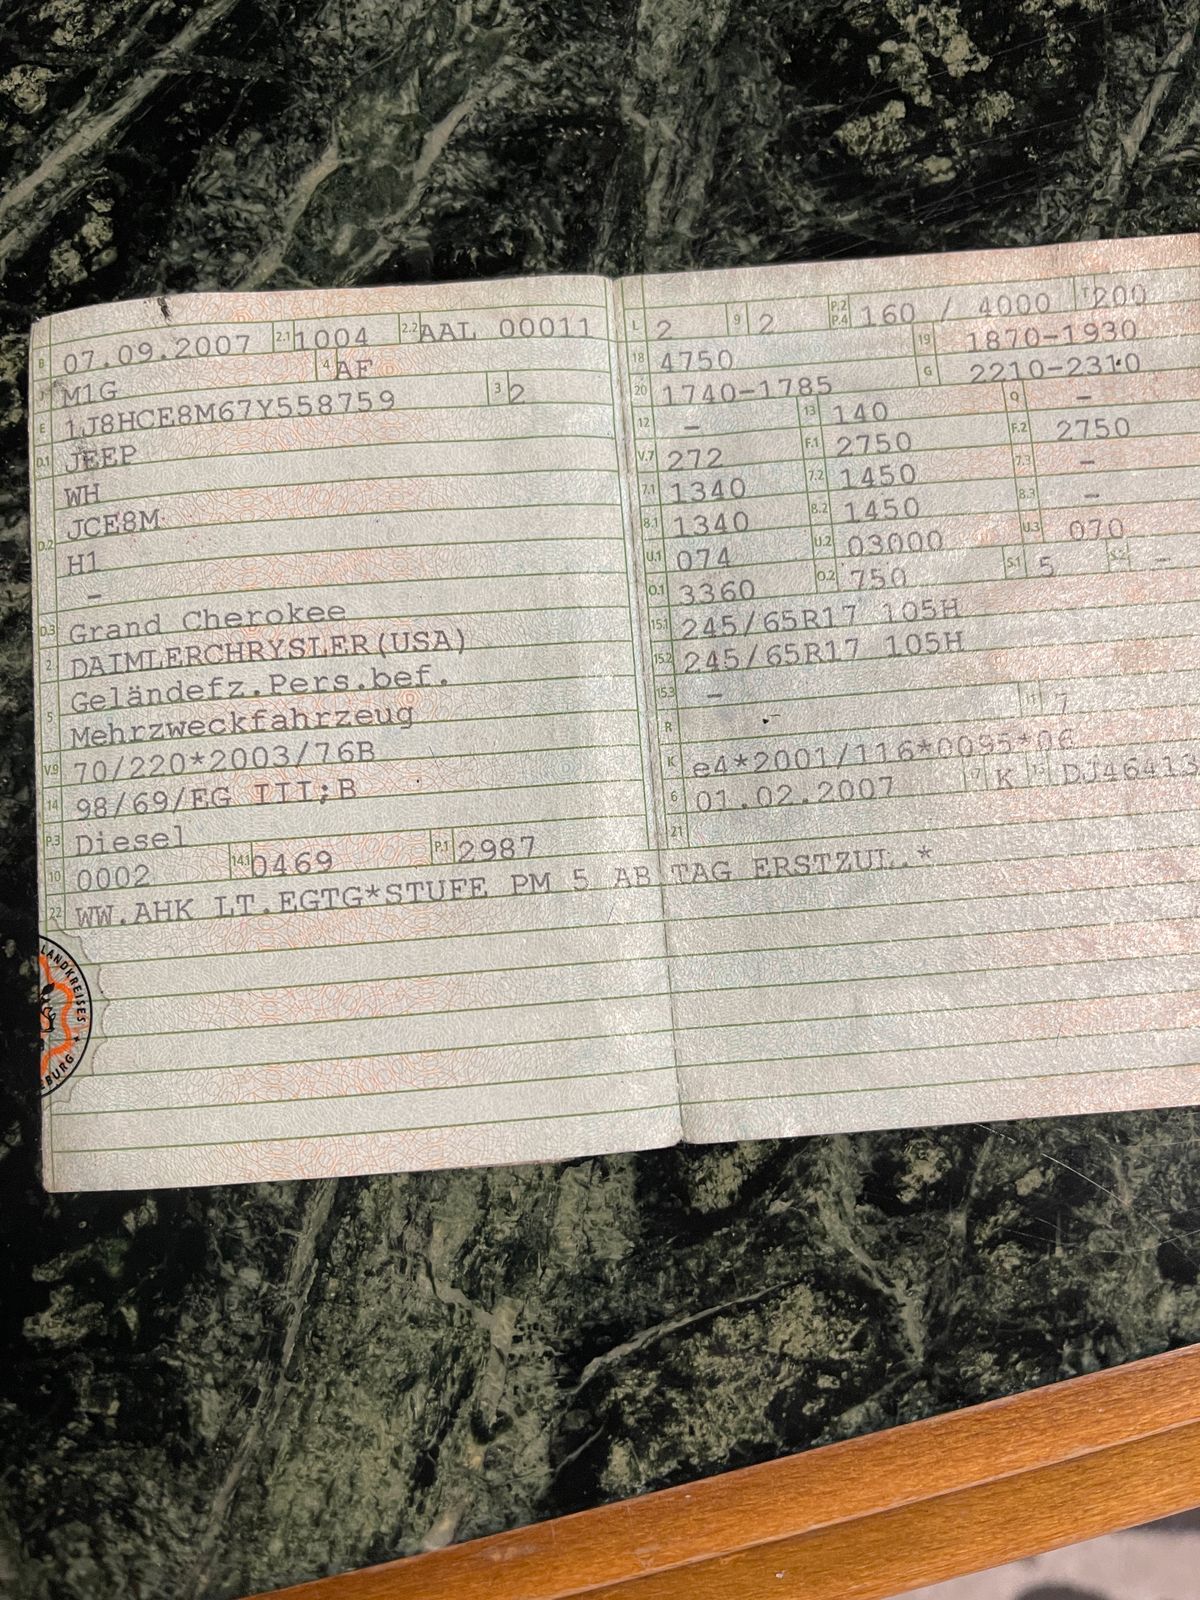 B 07.09.2007 2.1 1004 2.2 AAL 00011
J M1G 4 AF
E 1J8HCE8M67Y558759 3 2
D.1 JEEP
WH
D.2 JCE8M
H1
–
D.3 Grand Cherokee
2 DAIMLERCHRYSLER(USA)
5 Geländefz.Pers.bef.
Mehrzweckfahrzeug
V.9 70/220*2003/76B
14 98/69/EG III;B
P.3 Diesel
10 0002 14.1 0469 P.1 2987
22 WW.AHK LT.EGTG*STUFE PM 5 AB TAG ERSTZUL.*
LANDKREISES
L 2 9 2 P.2 P.4 160 / 4000 T 200
18 4750 19 1870-1930
20 1740-1785 G 2210-2310
12 – 13 140 Q –
V.7 272 F.1 2750 F.2 2750
7.1 1340 7.2 1450 7.3 –
8.1 1340 8.2 1450 8.3 –
U.1 074 U.2 03000 U.3 070
O.1 3360 O.2 750 S.1 5 S.2 –
15.1 245/65R17 105H
15.2 245/65R17 105H
15.3 –
R – 11 7
K e4*2001/116*0095*06
6 01.02.2007 17 K 16 DJ46413
21